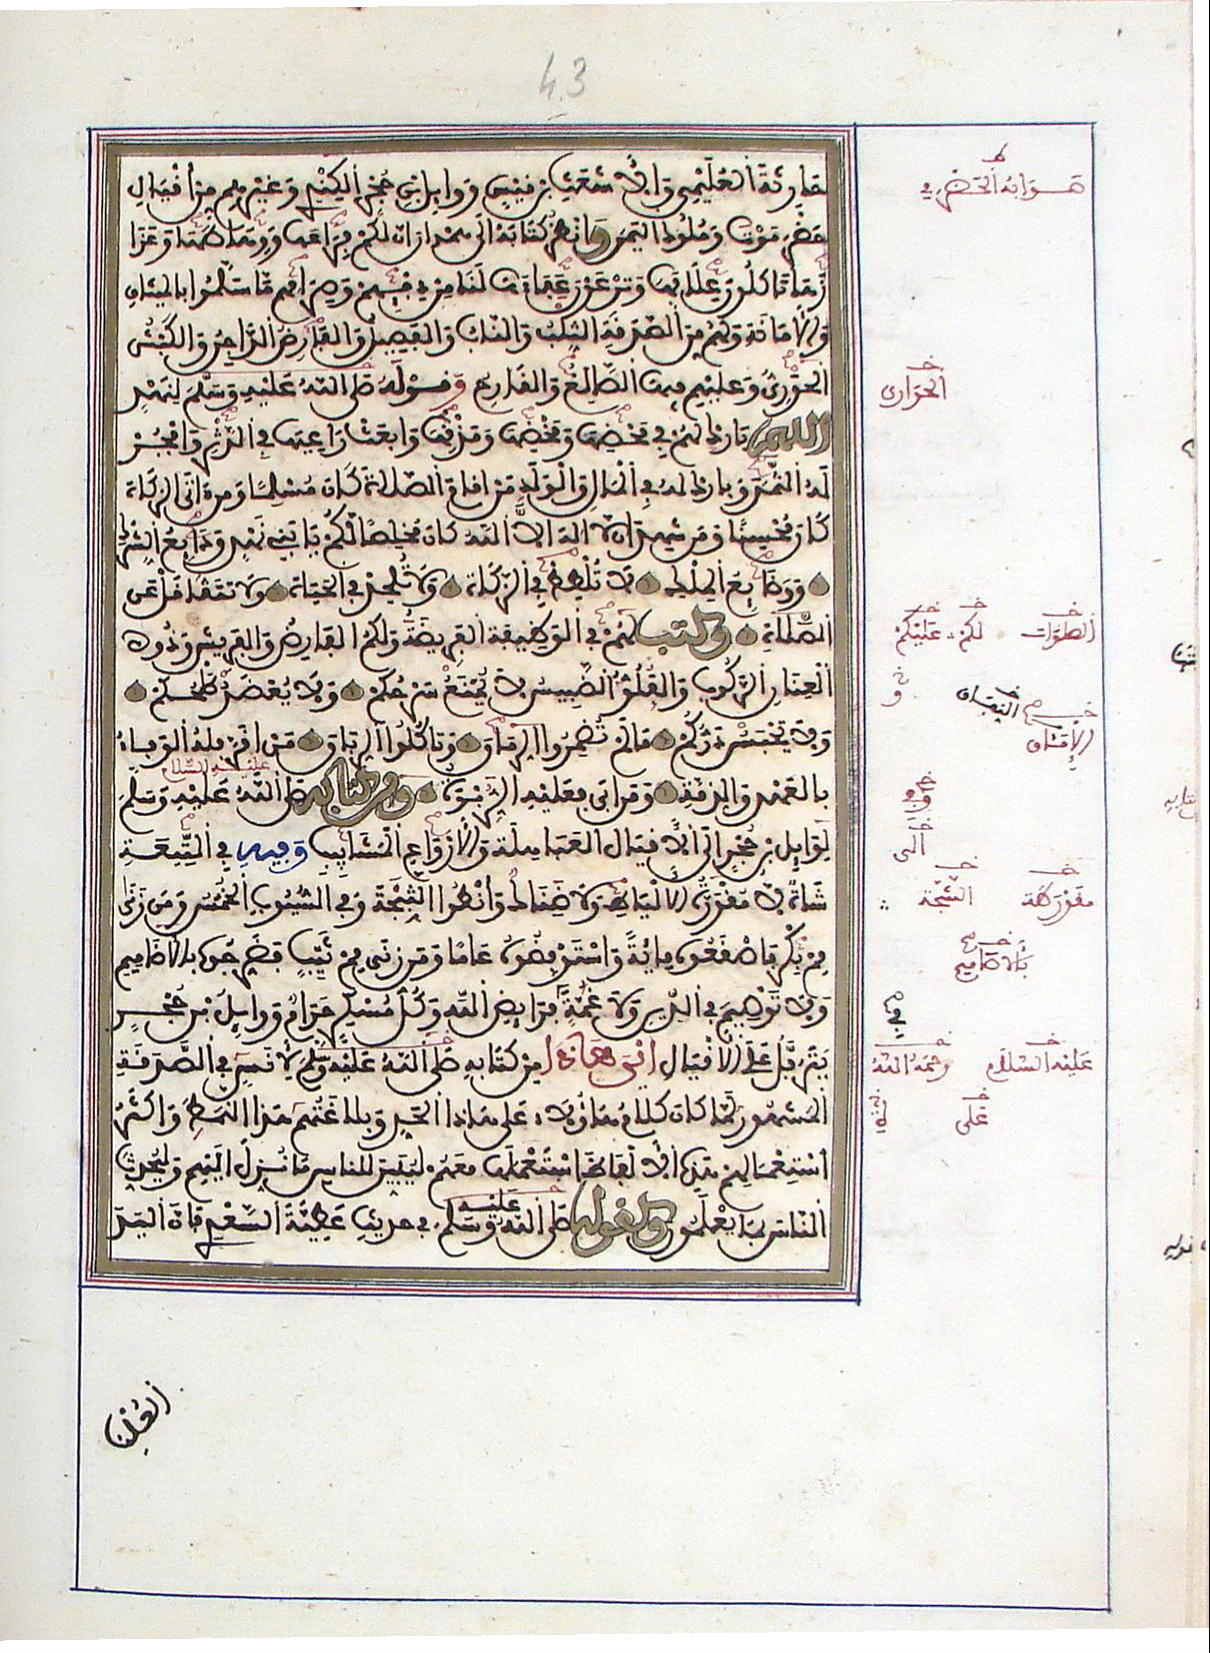 43
حارثة العليمي والاشعث بن قيس ووايل بن حجر الكندي وغيرهم من اقيال
حضرموت وملوك اليمن وانظر كتابه الى همدان ان لكم فراعها ووهاطها وعزازها
تاكلون علافها وترعون عفاءها لنا من دفئهم وصرامهم ما سلموا بالميثاق
والامانة ولهم من الصدقة الثلب والناب والفصيل والفارض الداجن والكبش
الحوري وعليهم فيها الصالغ والقارح وقوله صلى الله عليه وسلم لنهد
اللهم بارك لهم في محضها ومخضها ومذقها وابعث راعيها في الدثر وافجر
له الثمد وبارك له في المال والولد من اقام الصلاة كان مسلما ومن اتى الزكاة
كان محسنا ومن شهد ان لا اله الا الله كان مخلصا لكم يا بني نهد ودايع الشرك
ووضايع الملك لا تلطط في الزكاة ولا تلحد في الحياة ولا تتثاقل عن
الصلاة وكتب لهم في الوظيفة الفريضة ولكم الفارض والفريش وذو
العنان الركوب والفلو الضبيس لا يمنع سرحكم ولا يعضد طلحكم
ولا يحبس دركم ما لم تضمروا الرماق وتاكلوا الرباق من اقر فله الوفاء
بالعهد والذمة ومن ابى فعليه الربوة ومن كتابه صلى الله عليه وسلم
عليه السلام
لوايل بن حجر الى الاقيال العباهلة والارواع المشابيب وفيه في التيعة
شاة لا مقورة الالياط ولا ضناك وانطوا الثبجة وفي السيوب الخمس ومن زنى
مم بكر فاصقعوه ماية واستوفضوه عاما ومن زنى مم ثيب فضرجوه بالاضاميم
ولا توصيم في الدين ولا غمة في فرايض الله وكل مسكر حرام ووايل بن حجر
يترفل على الاقيال اين هذا من كتابه صلى الله عليه وسلم لانس في الصدقة
المشهور لما كان كلام هاؤلاء على هاذا الحد وبلاغتهم هذا النمط واكثر
استعمالهم هذه الالفاظ استعملها معهم ليبين للناس ما نزل اليهم وليحدث
الناس بما يعلمون وكقوله صلى الله عليه وسلم في حديث عطية السعدي فان اليد
صوابه الحضرمي
الحوارى
الصلوات لكم عليكم
الإماق
وفي
الى
مقورة الشجة
بالاضاميم
عليه السلام رحمه الله
على
العليا